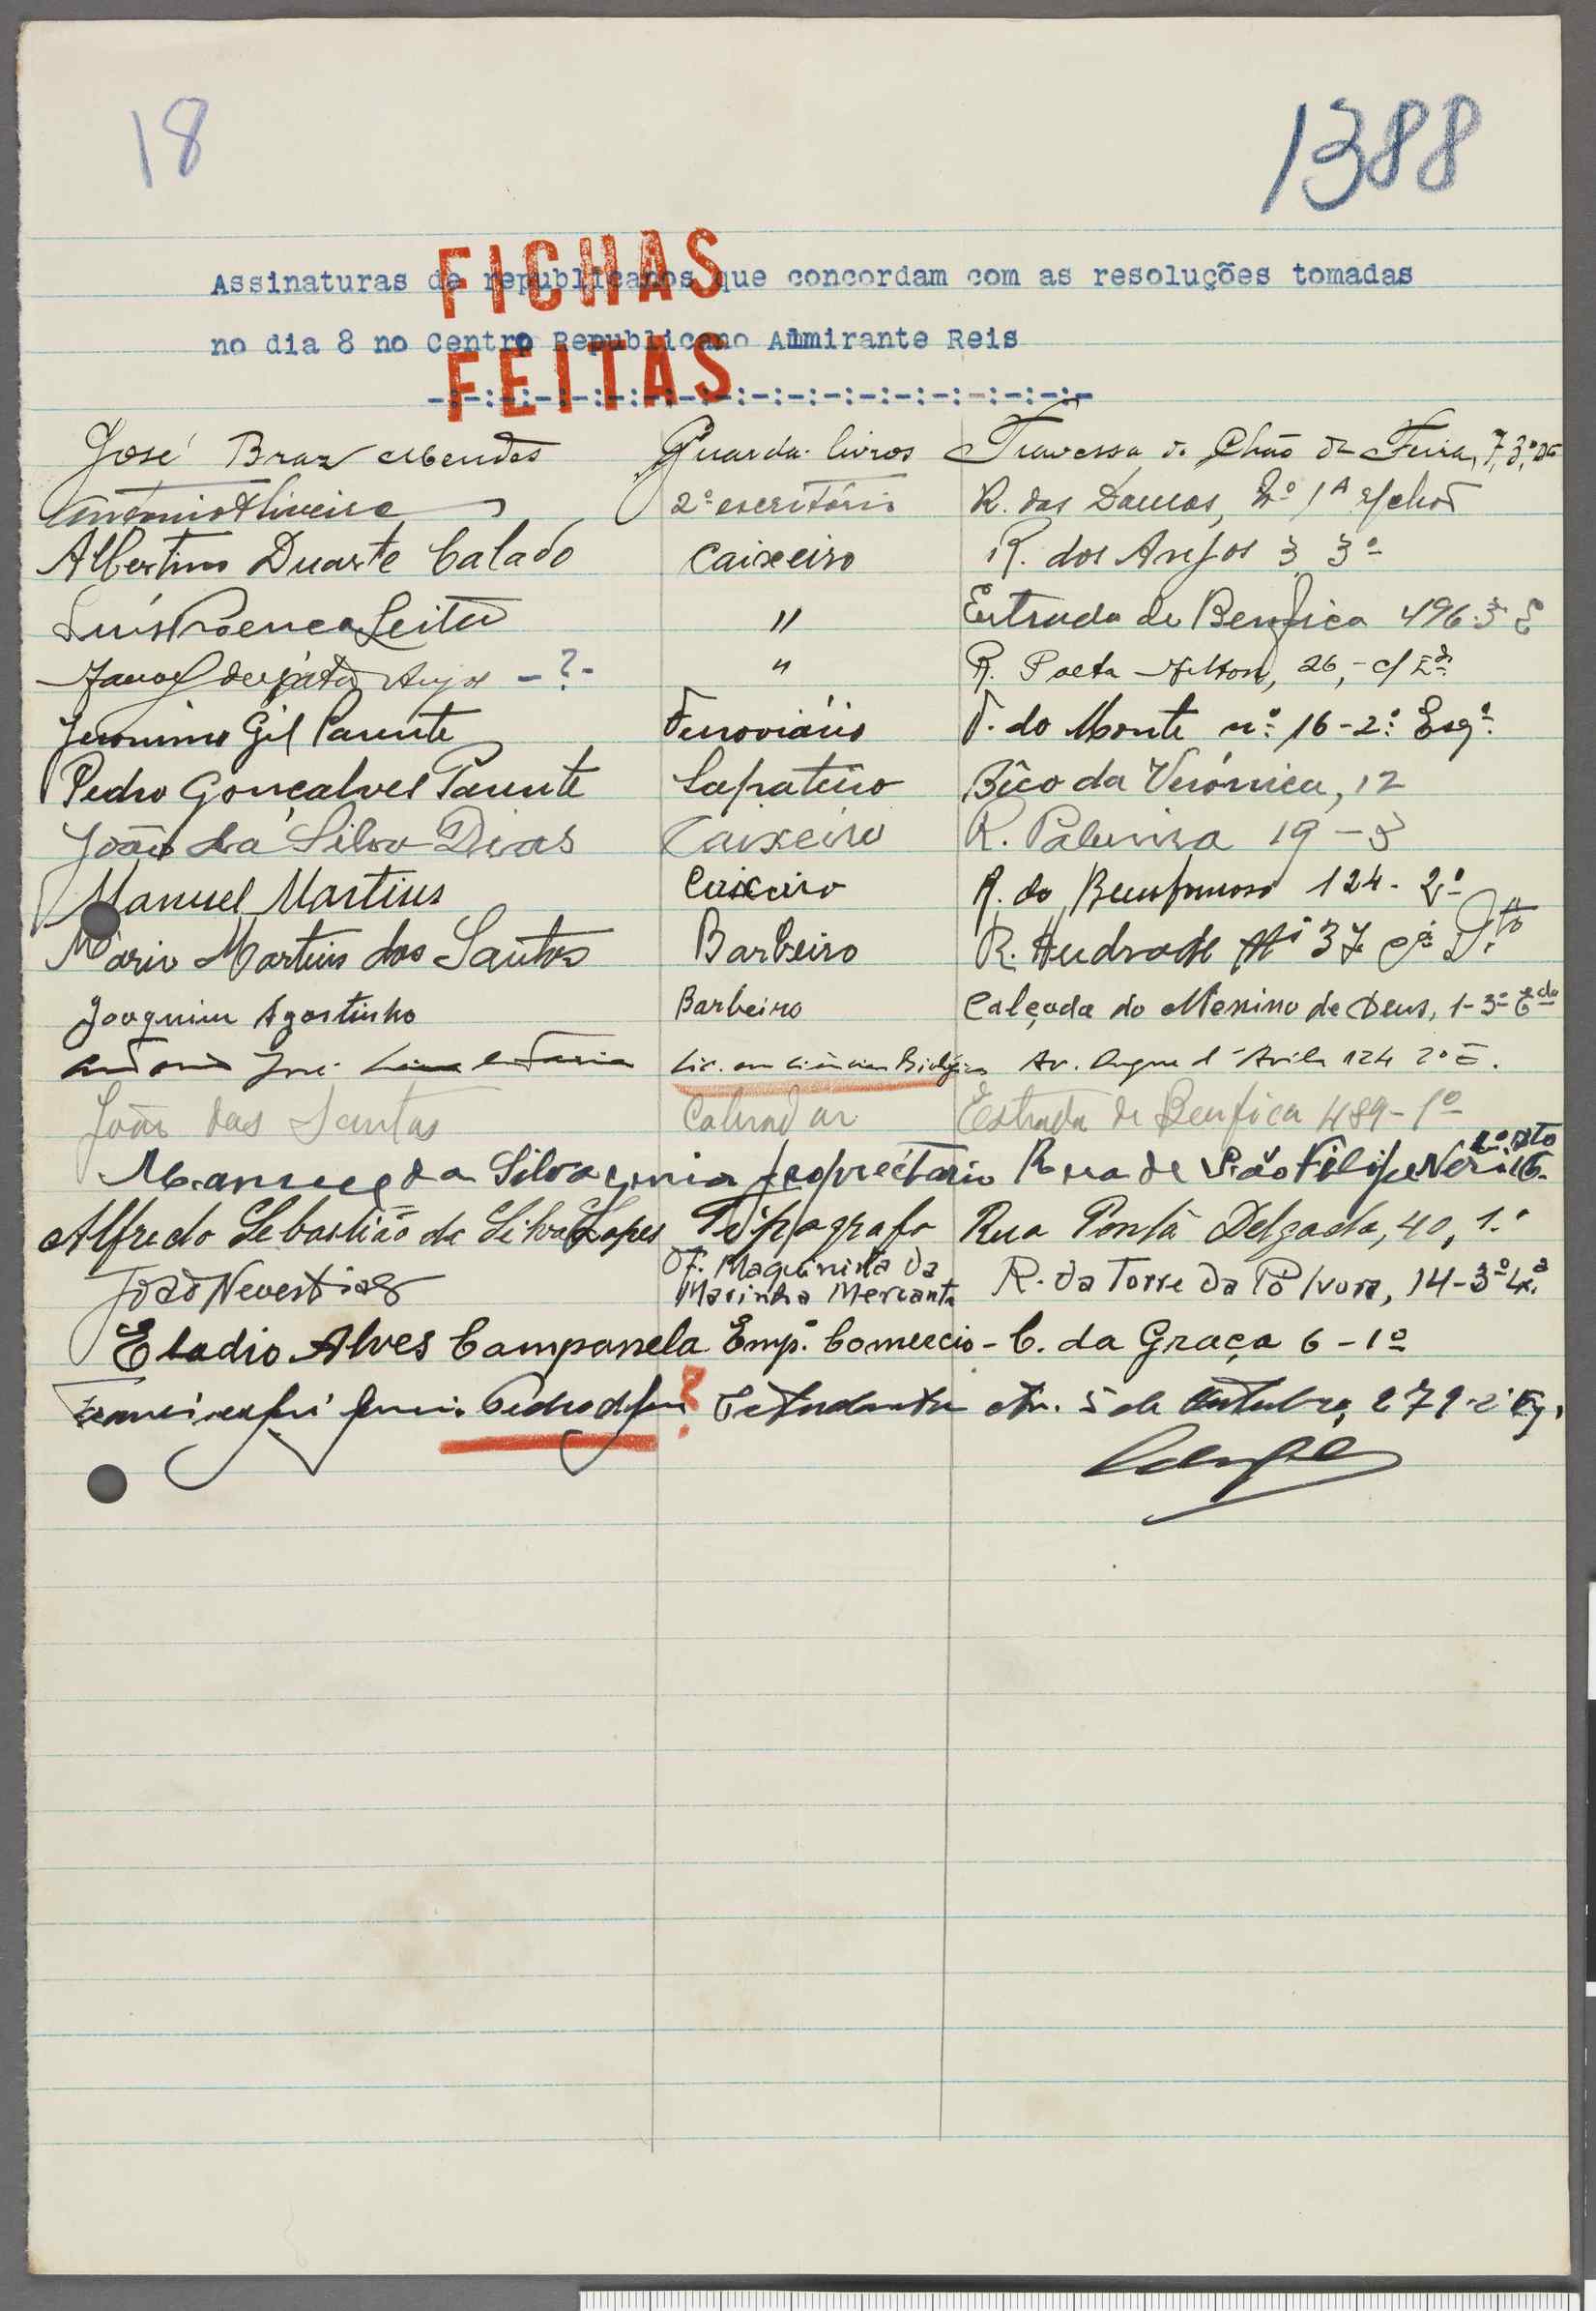 18
1388
FICHAS
Assinaturas de republicanos que concordam com as resoluções tomadas
no dia 8 no Centro Republicano Almirante Reis
FEITAS
-:-:-:-:-:-:-:-:-:-:-:-:-:-:-:-:-:-:-
José Braz Mendes Guarda-livros Travessa do Chão da Feira, 7, 3.º
António Oliveira 2º escritório R. das Damas,
Albertino Duarte Calado Caixeiro R. dos Anjos 3 3º
Luís Proença Leitão " Estrada de Benfica 496
Anjos -?- " R. Poeta Milton, 26,
Jeronimo Gil Parente Ferroviário T. do Monte nº 16-2º Esqº
Pedro Gonçalves Parente Sapateiro Bêco da Verónica, 12
João da Silva Dias Caixeiro R. Palmira 19-3
Manuel Martins Caixeiro R. do Benformoso 124-2º
Mário Martins dos Santos Barbeiro R. Andrade 37
Joaquim Agostinho Barbeiro Calçada do Menino de Deus, 1-3º
António José Lic. em Ciências Biológicas Av. Duque d'Avila 124 2º
João dos Santos Estrada de Benfica 489-1º
Manuel da Silva proprietario Rua de São Filipe Neri
Alfredo Sebastião da Silva Lopes Tipografo Rua Ponta Delgada, 40, 1.º
João Neves Dias Of. Maquinista da
Marinha Mercante R. da Torre da Pólvora, 14-3º
Eladio Alves Campanela Emp. Comercio - C. da Graça 6-1º
Estudante Av. 5 de Outubro, 279-2º